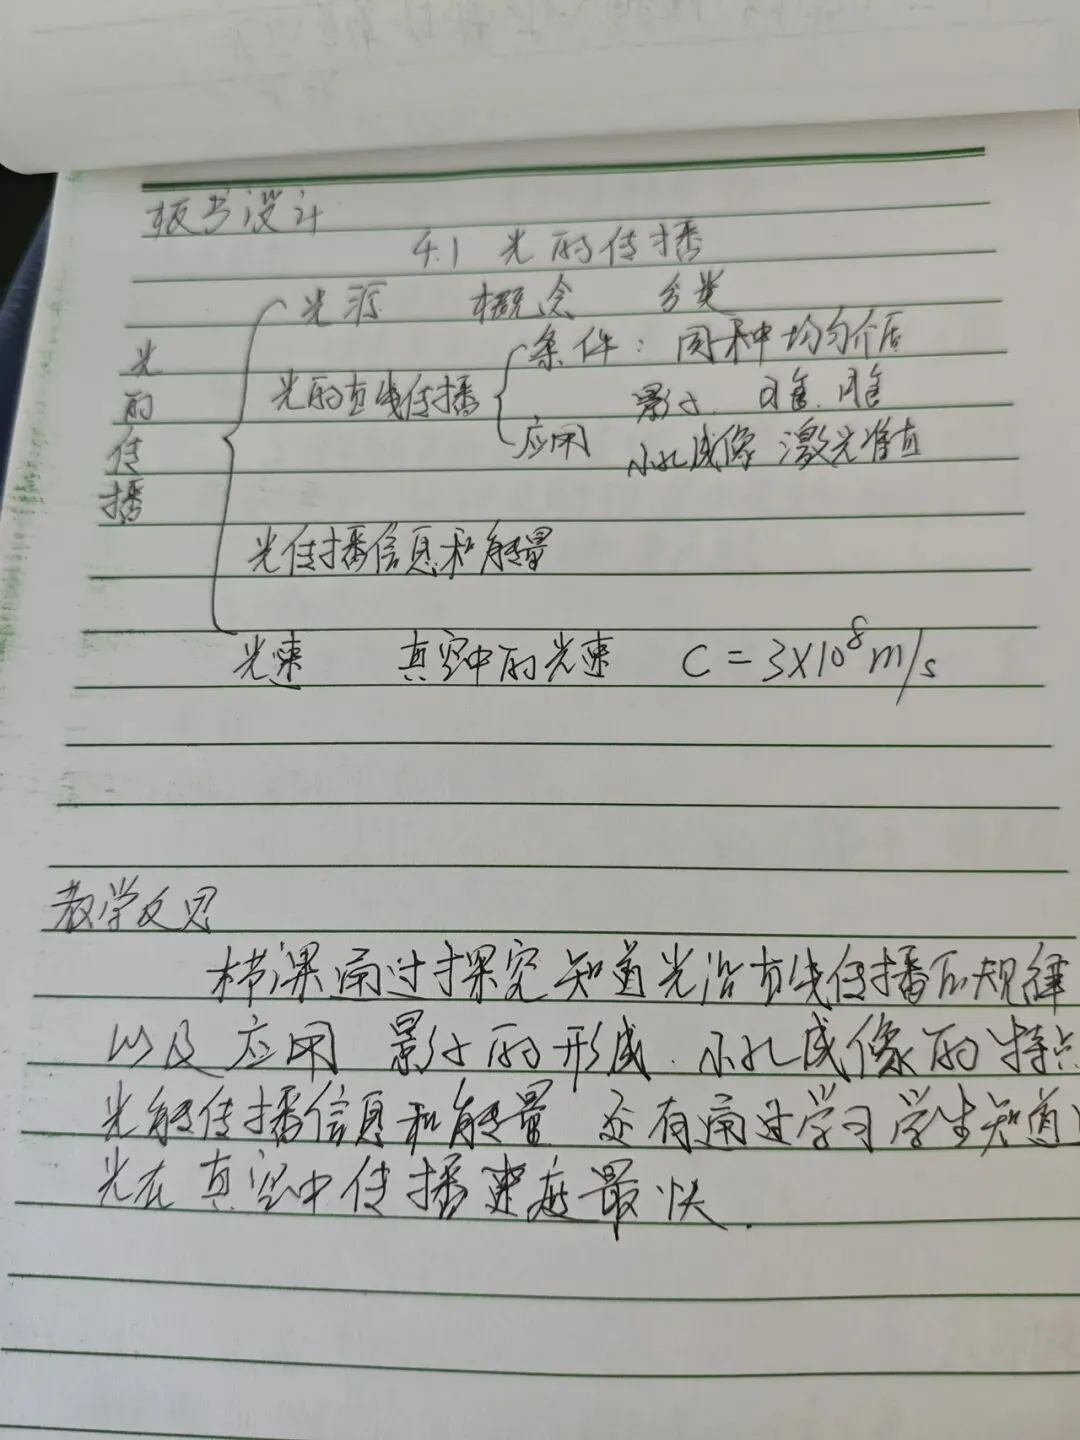 板书设计
4.1 光的传播
光源 概念 分类
光的传播
光的直线传播
条件: 同种均匀介质
影子、日食、月食
应用
小孔成像 激光准直
光传播信息和能量
光速 真空中的光速 C=3×10⁸m/s
教学反思
本节课通过探究知道光沿直线传播的规律
以及应用 影子的形成、小孔成像的特点
光能传播信息和能量 还有通过学习学生知道
光在真空中传播速度最快.